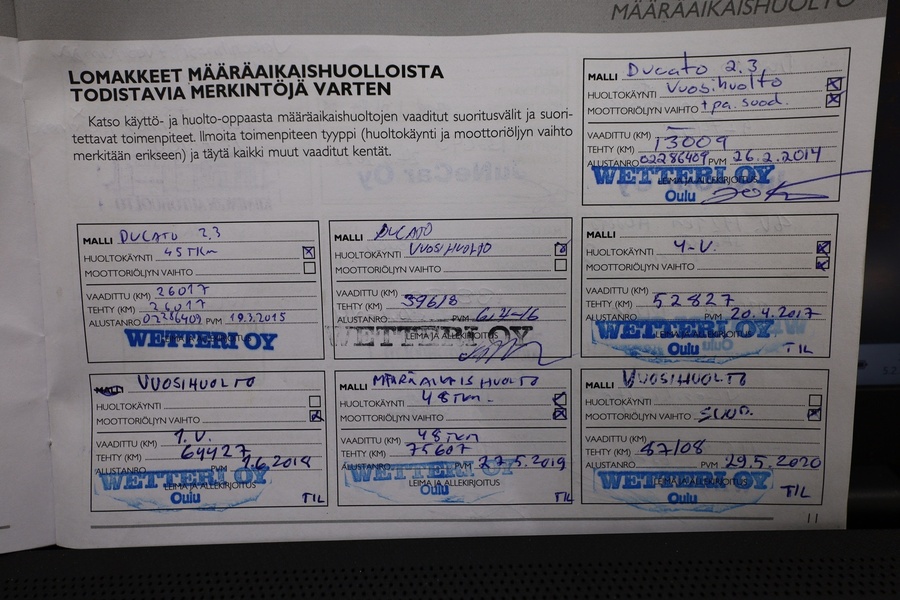 MÄÄRÄAIKAISHUOLTO
LOMAKKEET MÄÄRÄAIKAISHUOLLOISTA
TODISTAVIA MERKINTÖJÄ VARTEN
Katso käyttö- ja huolto-oppaasta määräaikaishuoltojen vaaditut suoritusvälit ja suori-
tettavat toimenpiteet. Ilmoita toimenpiteen tyyppi (huoltokäynti ja moottoriöljyn vaihto
merkitään erikseen) ja täytä kaikki muut vaaditut kentät.
MALLI Ducato 2.3
HUOLTOKÄYNTI Vuosihuolto
MOOTTORIÖLJYN VAIHTO + pa. suod.
VAADITTU (KM)
TEHTY (KM) 13009
ALUSTANRO 02286409 PVM 26.2.2014
WETTERI OY
LEIMA JA ALLEKIRJOITUS
Oulu
MALLI DUCATO 2.3
HUOLTOKÄYNTI 45TKm
MOOTTORIÖLJYN VAIHTO
VAADITTU (KM) 26017
TEHTY (KM) 26017
ALUSTANRO 02286409 PVM 19.3.2015
WETTERI OY
MALLI DUCATO
HUOLTOKÄYNTI VUOSIHUOLTO
MOOTTORIÖLJYN VAIHTO
VAADITTU (KM)
TEHTY (KM) 39618
ALUSTANRO PVM 6.4-16
WETTERI OY
LEIMA JA ALLEKIRJOITUS
MALLI
HUOLTOKÄYNTI 4-V.
MOOTTORIÖLJYN VAIHTO
VAADITTU (KM)
TEHTY (KM) 52827
ALUSTANRO PVM 20.4.2017
WETTERI OY
LEIMA JA ALLEKIRJOITUS
Oulu TIL
MALLI VUOSIHUOLTO
HUOLTOKÄYNTI
MOOTTORIÖLJYN VAIHTO
VAADITTU (KM) 1.V.
TEHTY (KM) 64427
ALUSTANRO PVM 1.6.2018
WETTERI OY
LEIMA JA ALLEKIRJOITUS
Oulu TIL
MÄÄRÄAIKAISHUOLTO
MALLI
HUOLTOKÄYNTI 48TKm.
MOOTTORIÖLJYN VAIHTO
VAADITTU (KM) 48TKM
TEHTY (KM) 75607
ALUSTANRO PVM 27.5.2019
WETTERI OY
LEIMA JA ALLEKIRJOITUS
Oulu TIL
MALLI VUOSIHUOLTO
HUOLTOKÄYNTI
MOOTTORIÖLJYN VAIHTO SUOD.
VAADITTU (KM)
TEHTY (KM) 87108
ALUSTANRO PVM 29.5.2020
WETTERI OY
LEIMA JA ALLEKIRJOITUS
Oulu TIL
11